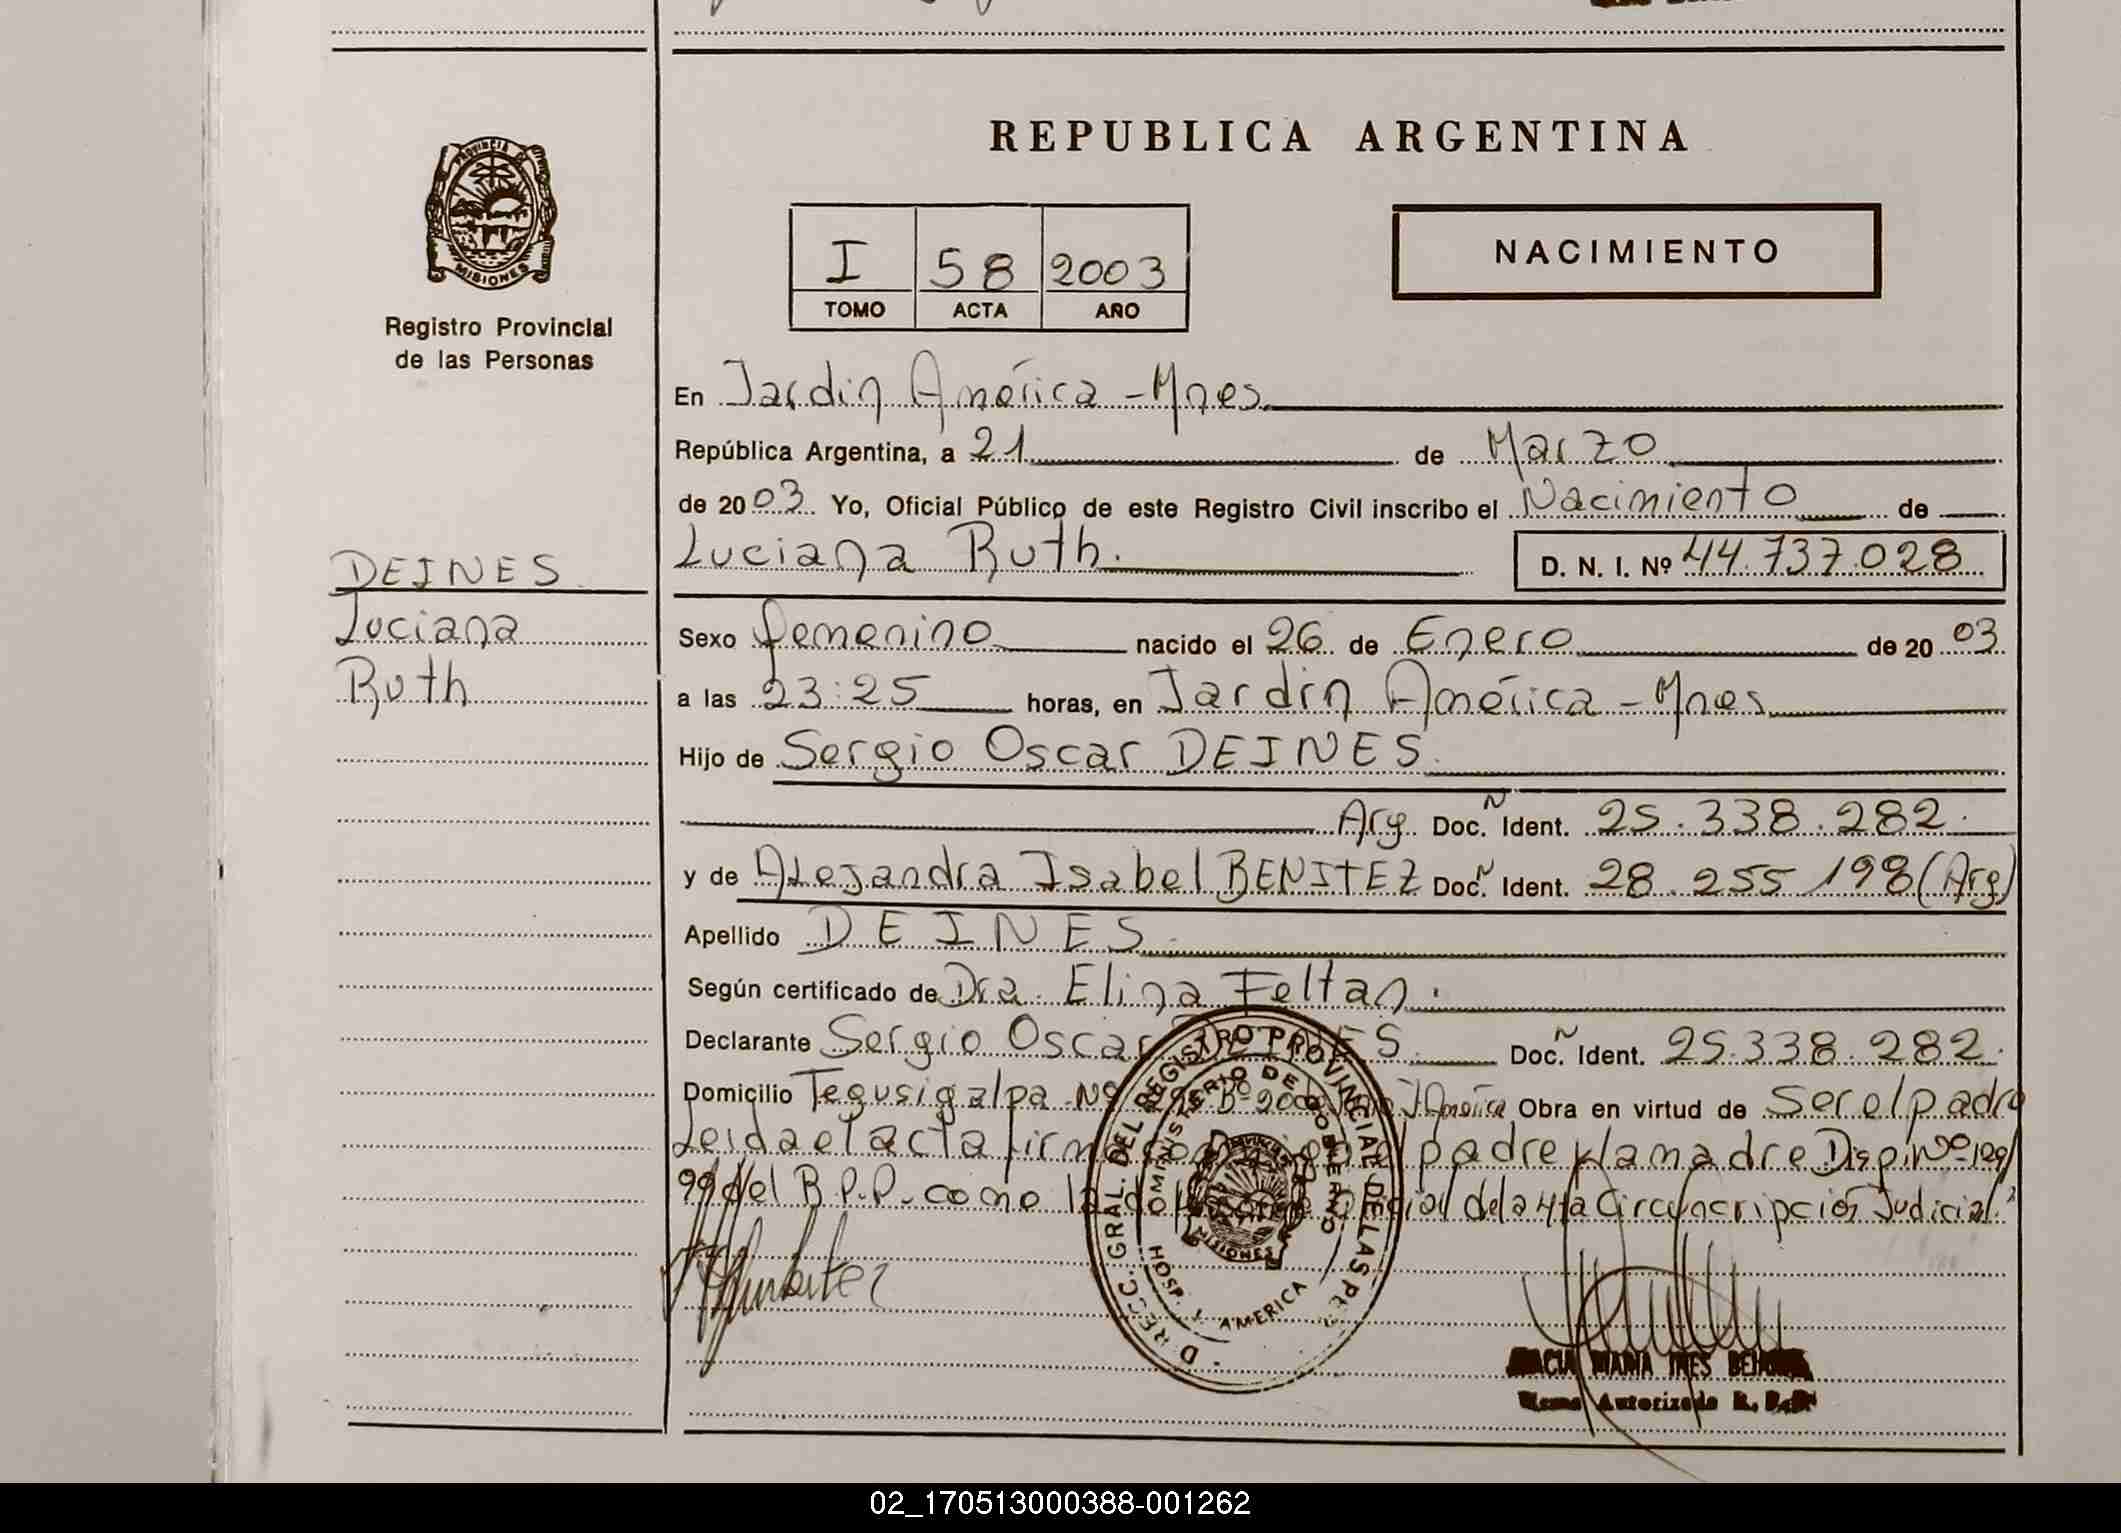 REPUBLICA ARGENTINA
PROVINCIA DE
MISIONES
Registro Provincial
de las Personas
I 58 2003
TOMO ACTA AÑO
NACIMIENTO
En Jardin América - Mnes
República Argentina, a 21 de Marzo
de 2003 Yo, Oficial Público de este Registro Civil inscribo el Nacimiento de
Luciana Ruth. D. N. I. Nº 44.737.028
DEINES
Luciana
Ruth
Sexo femenino nacido el 26 de Enero de 2003
a las 23:25 horas, en Jardin América - Mnes
Hijo de Sergio Oscar DEINES
Arg. Doc. Ident. 25.338.282.
y de Alejandra Isabel BENITEZ Doc. Ident. 28.255.198 (Arg)
Apellido DEINES
Según certificado de Dra. Elina Feltan.
Declarante Sergio Oscar DEINES Doc. Ident. 25.338.282.
Domicilio Tegusigalpa Nº Bº J. América Obra en virtud de Ser el padre
Leida el acta firman el padre y la madre Disp. Nº
99 del R.P.P. como de la 4ta Circuncripción Judicial.
DIRECC. GRAL. DEL REGISTRO PROVINCIAL DE LAS PER
MINISTERIO DE GOBIERNO
MISIONES
HOSP. J. AMERICA
MARIA INES
Autorizada R. P. P.
02_170513000388-001262